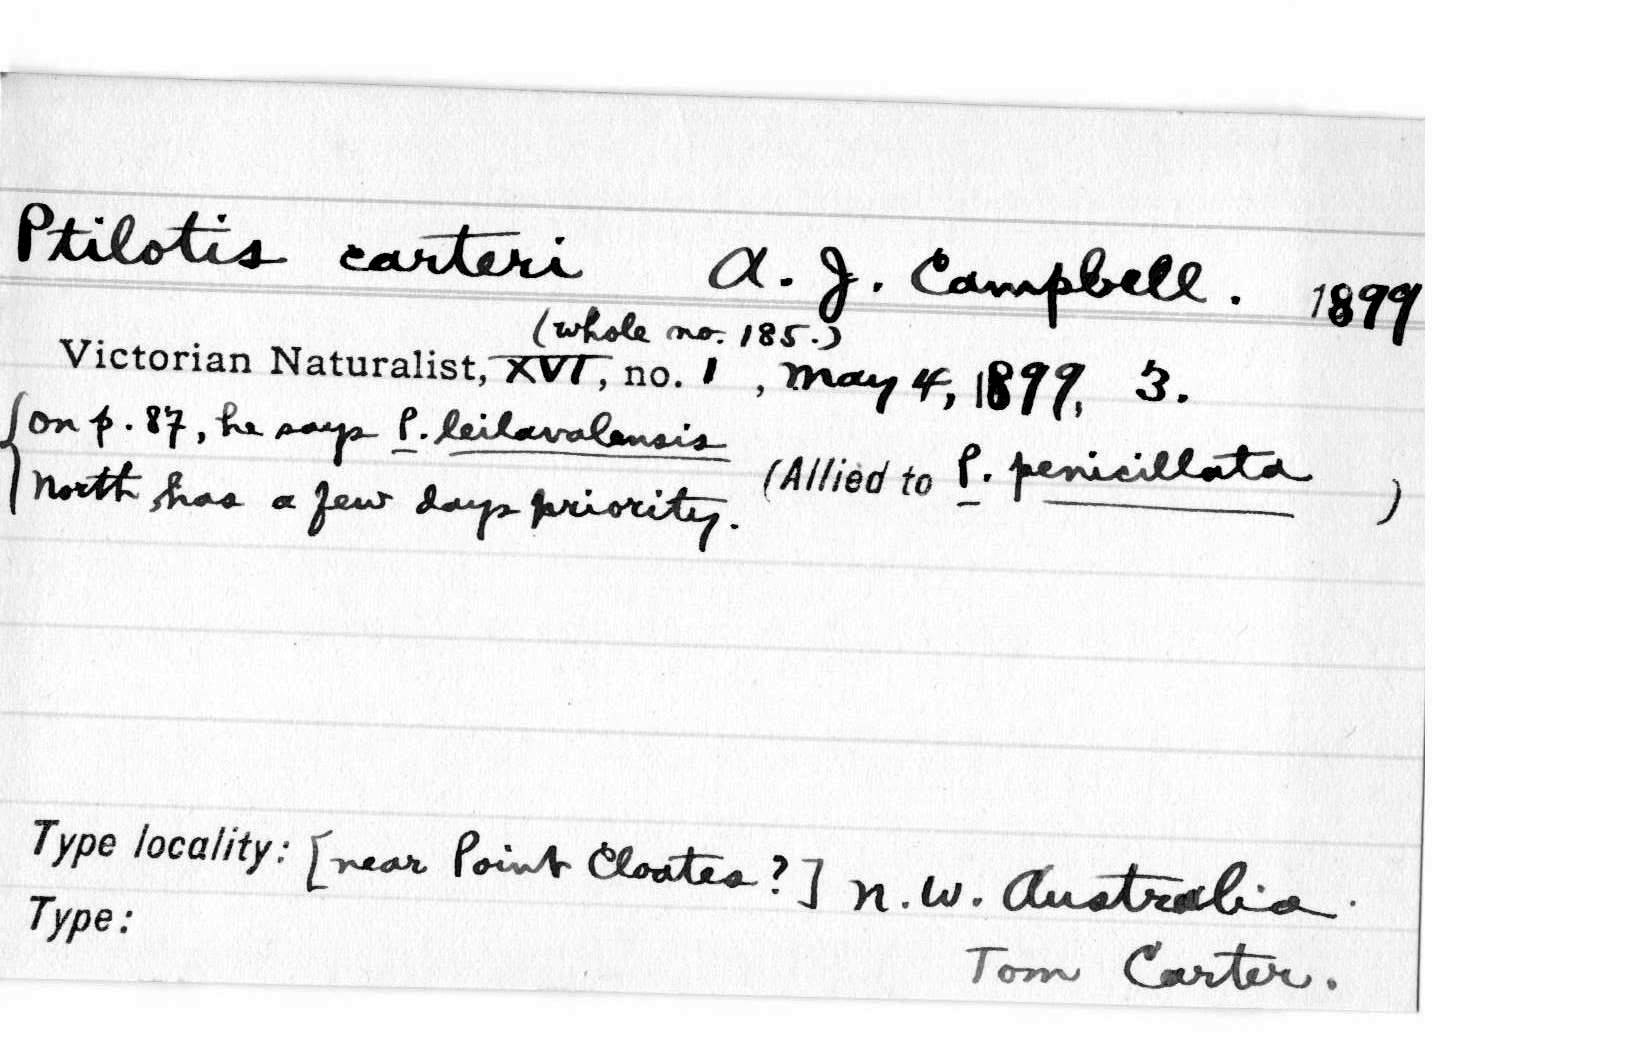 Ptilotis carteri A. J. Campbell. 1899
(whole no. 185.)
Victorian Naturalist, XVI, no. 1, May 4, 1899, 3.
{On p. 87, he says P. leilavalensis
North, has a few days priority. (Allied to P. penicillata )
Type locality: [near Point Cloates?] N.W. Australia.
Type:
Tom Carter.